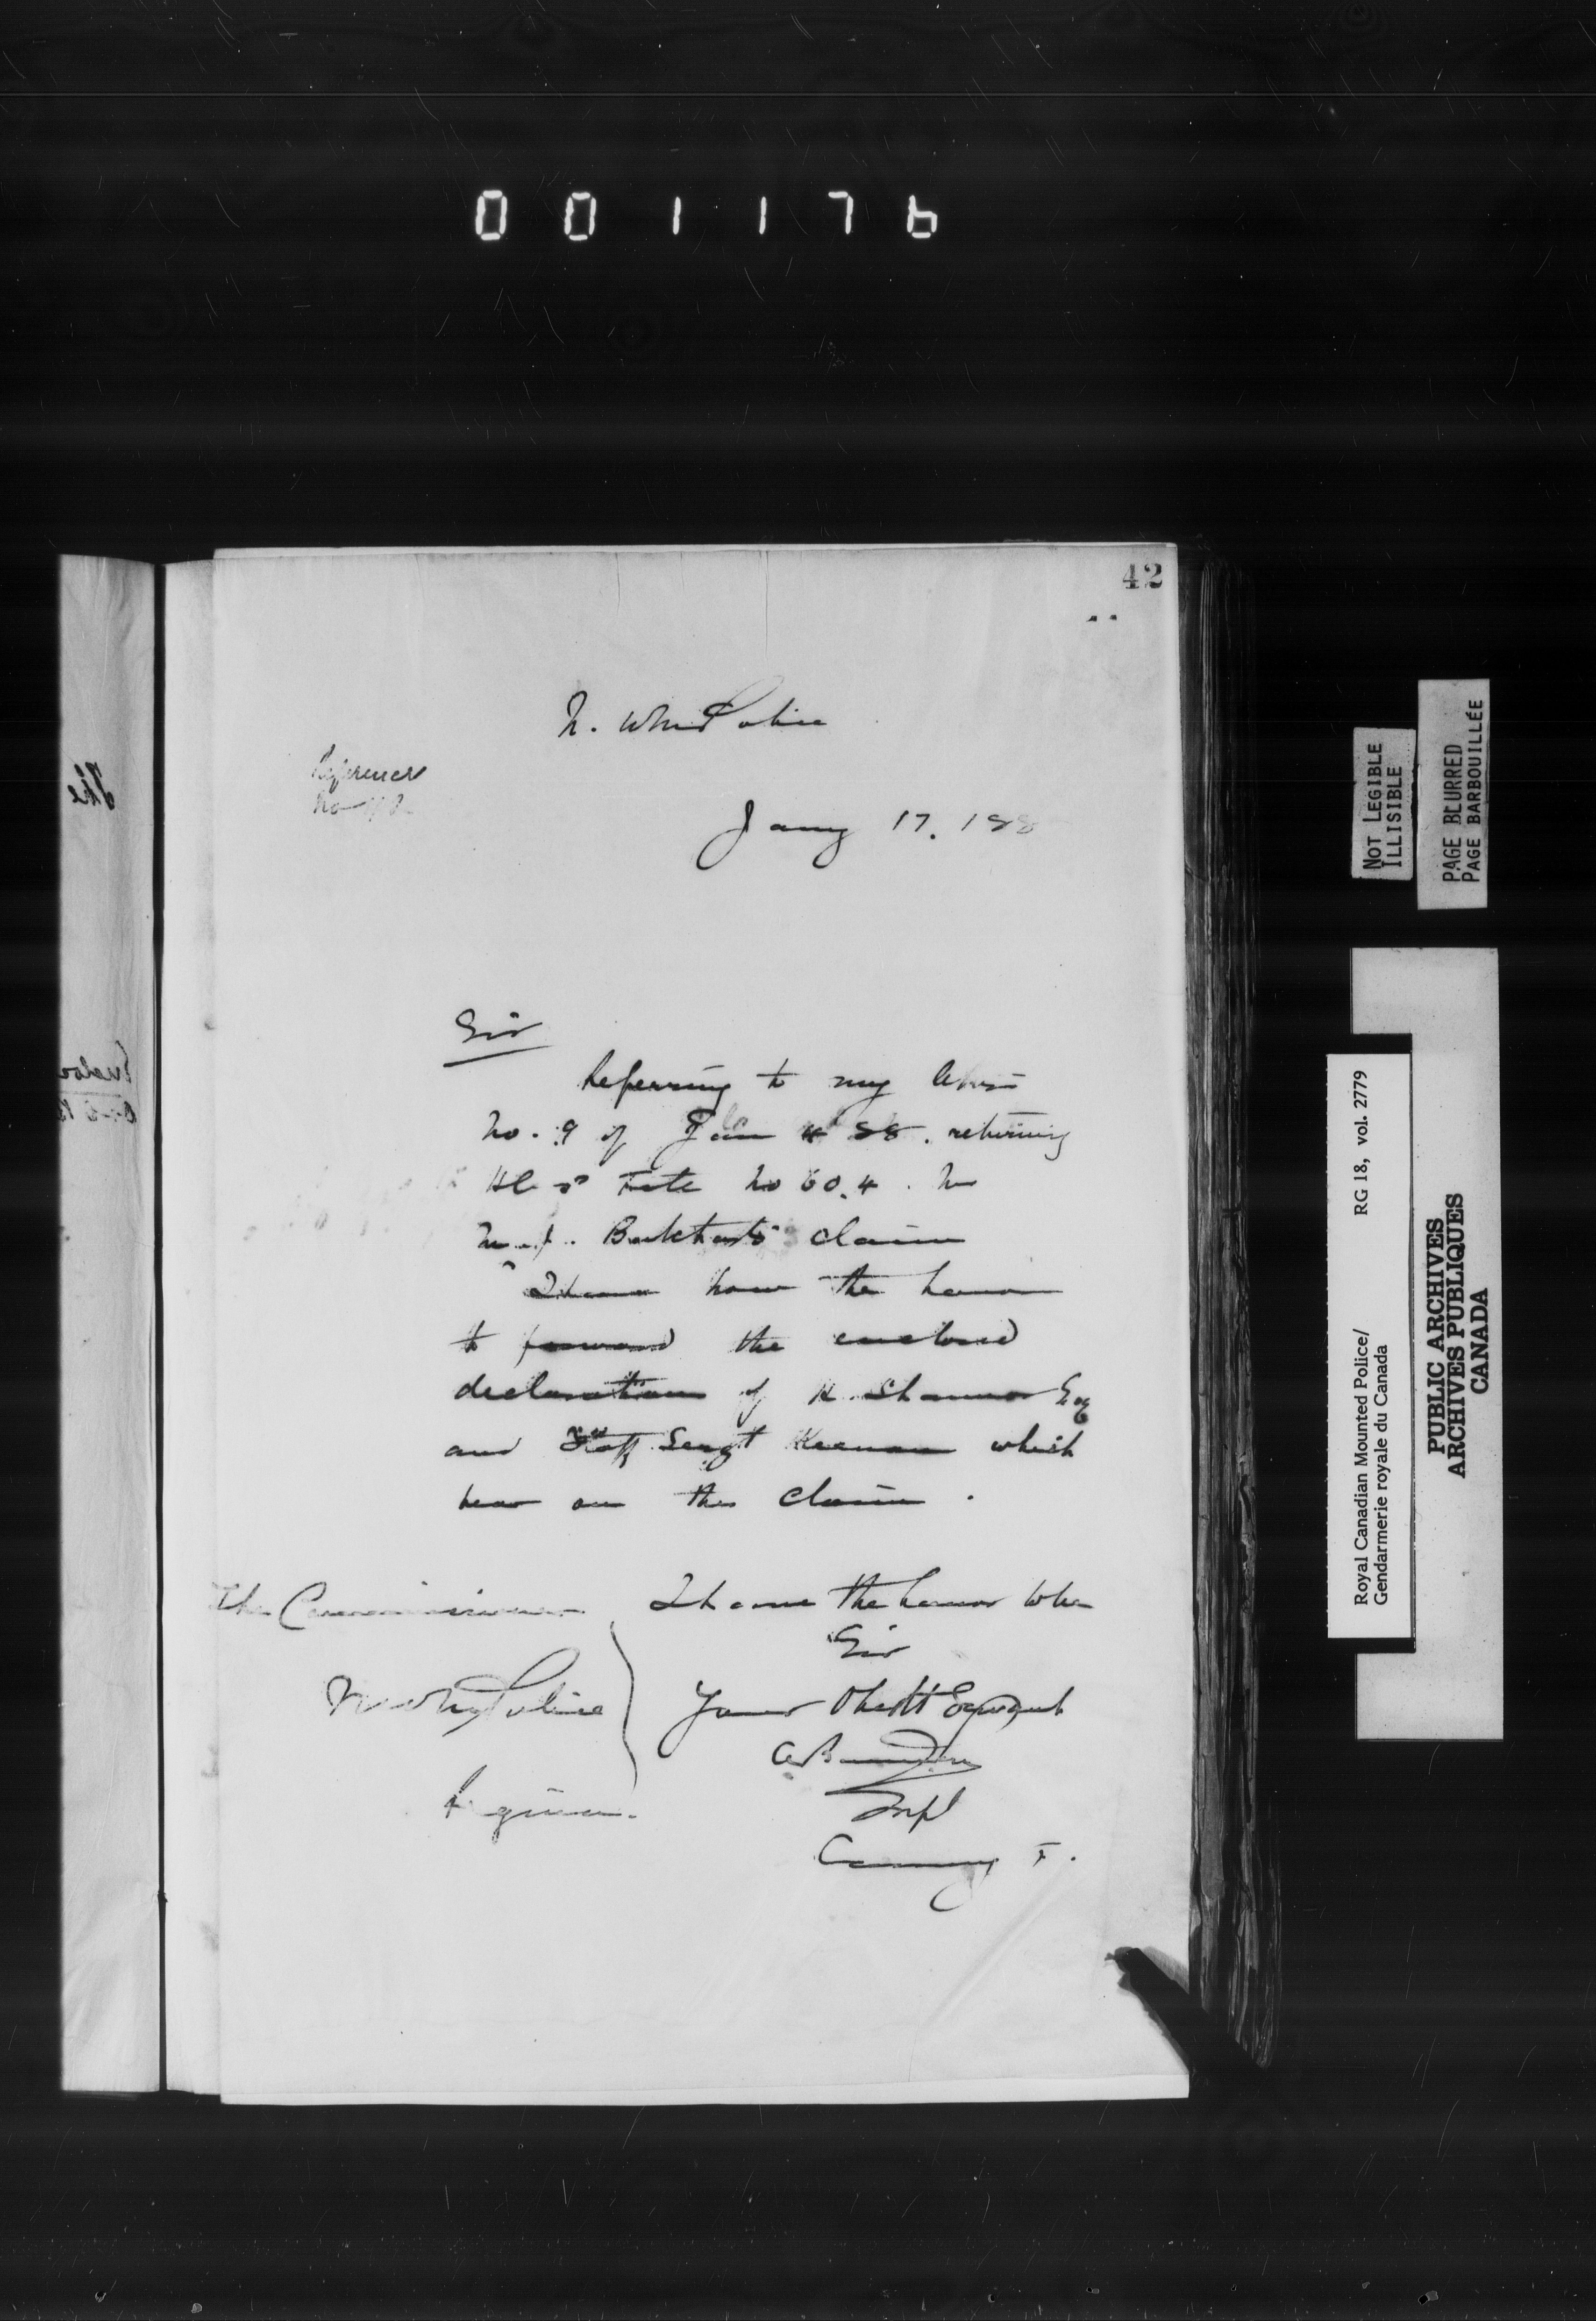 001176
42
N. W. M. Police
Reference
No
Jany 17. 188
Sir
Referring to my letter
No. 9 of Jan 4 88. returning
File No 60.4.
claim
I have now the honor
to forward the enclosed
declaration of H. Shannon Esq
and Staff Sergt Keenan which
bear on the claim.
The Commissioner
N. W. M. Police
Regina.
I have the honor to be
Sir
Your Obedt Servant
Supt
Comng F.
The
NOT LEGIBLE
ILLISIBLE
PAGE BLURRED
PAGE BARBOUILLÉE
Royal Canadian Mounted Police/ RG 18, vol. 2779
Gendarmerie royale du Canada
PUBLIC ARCHIVES
ARCHIVES PUBLIQUES
CANADA